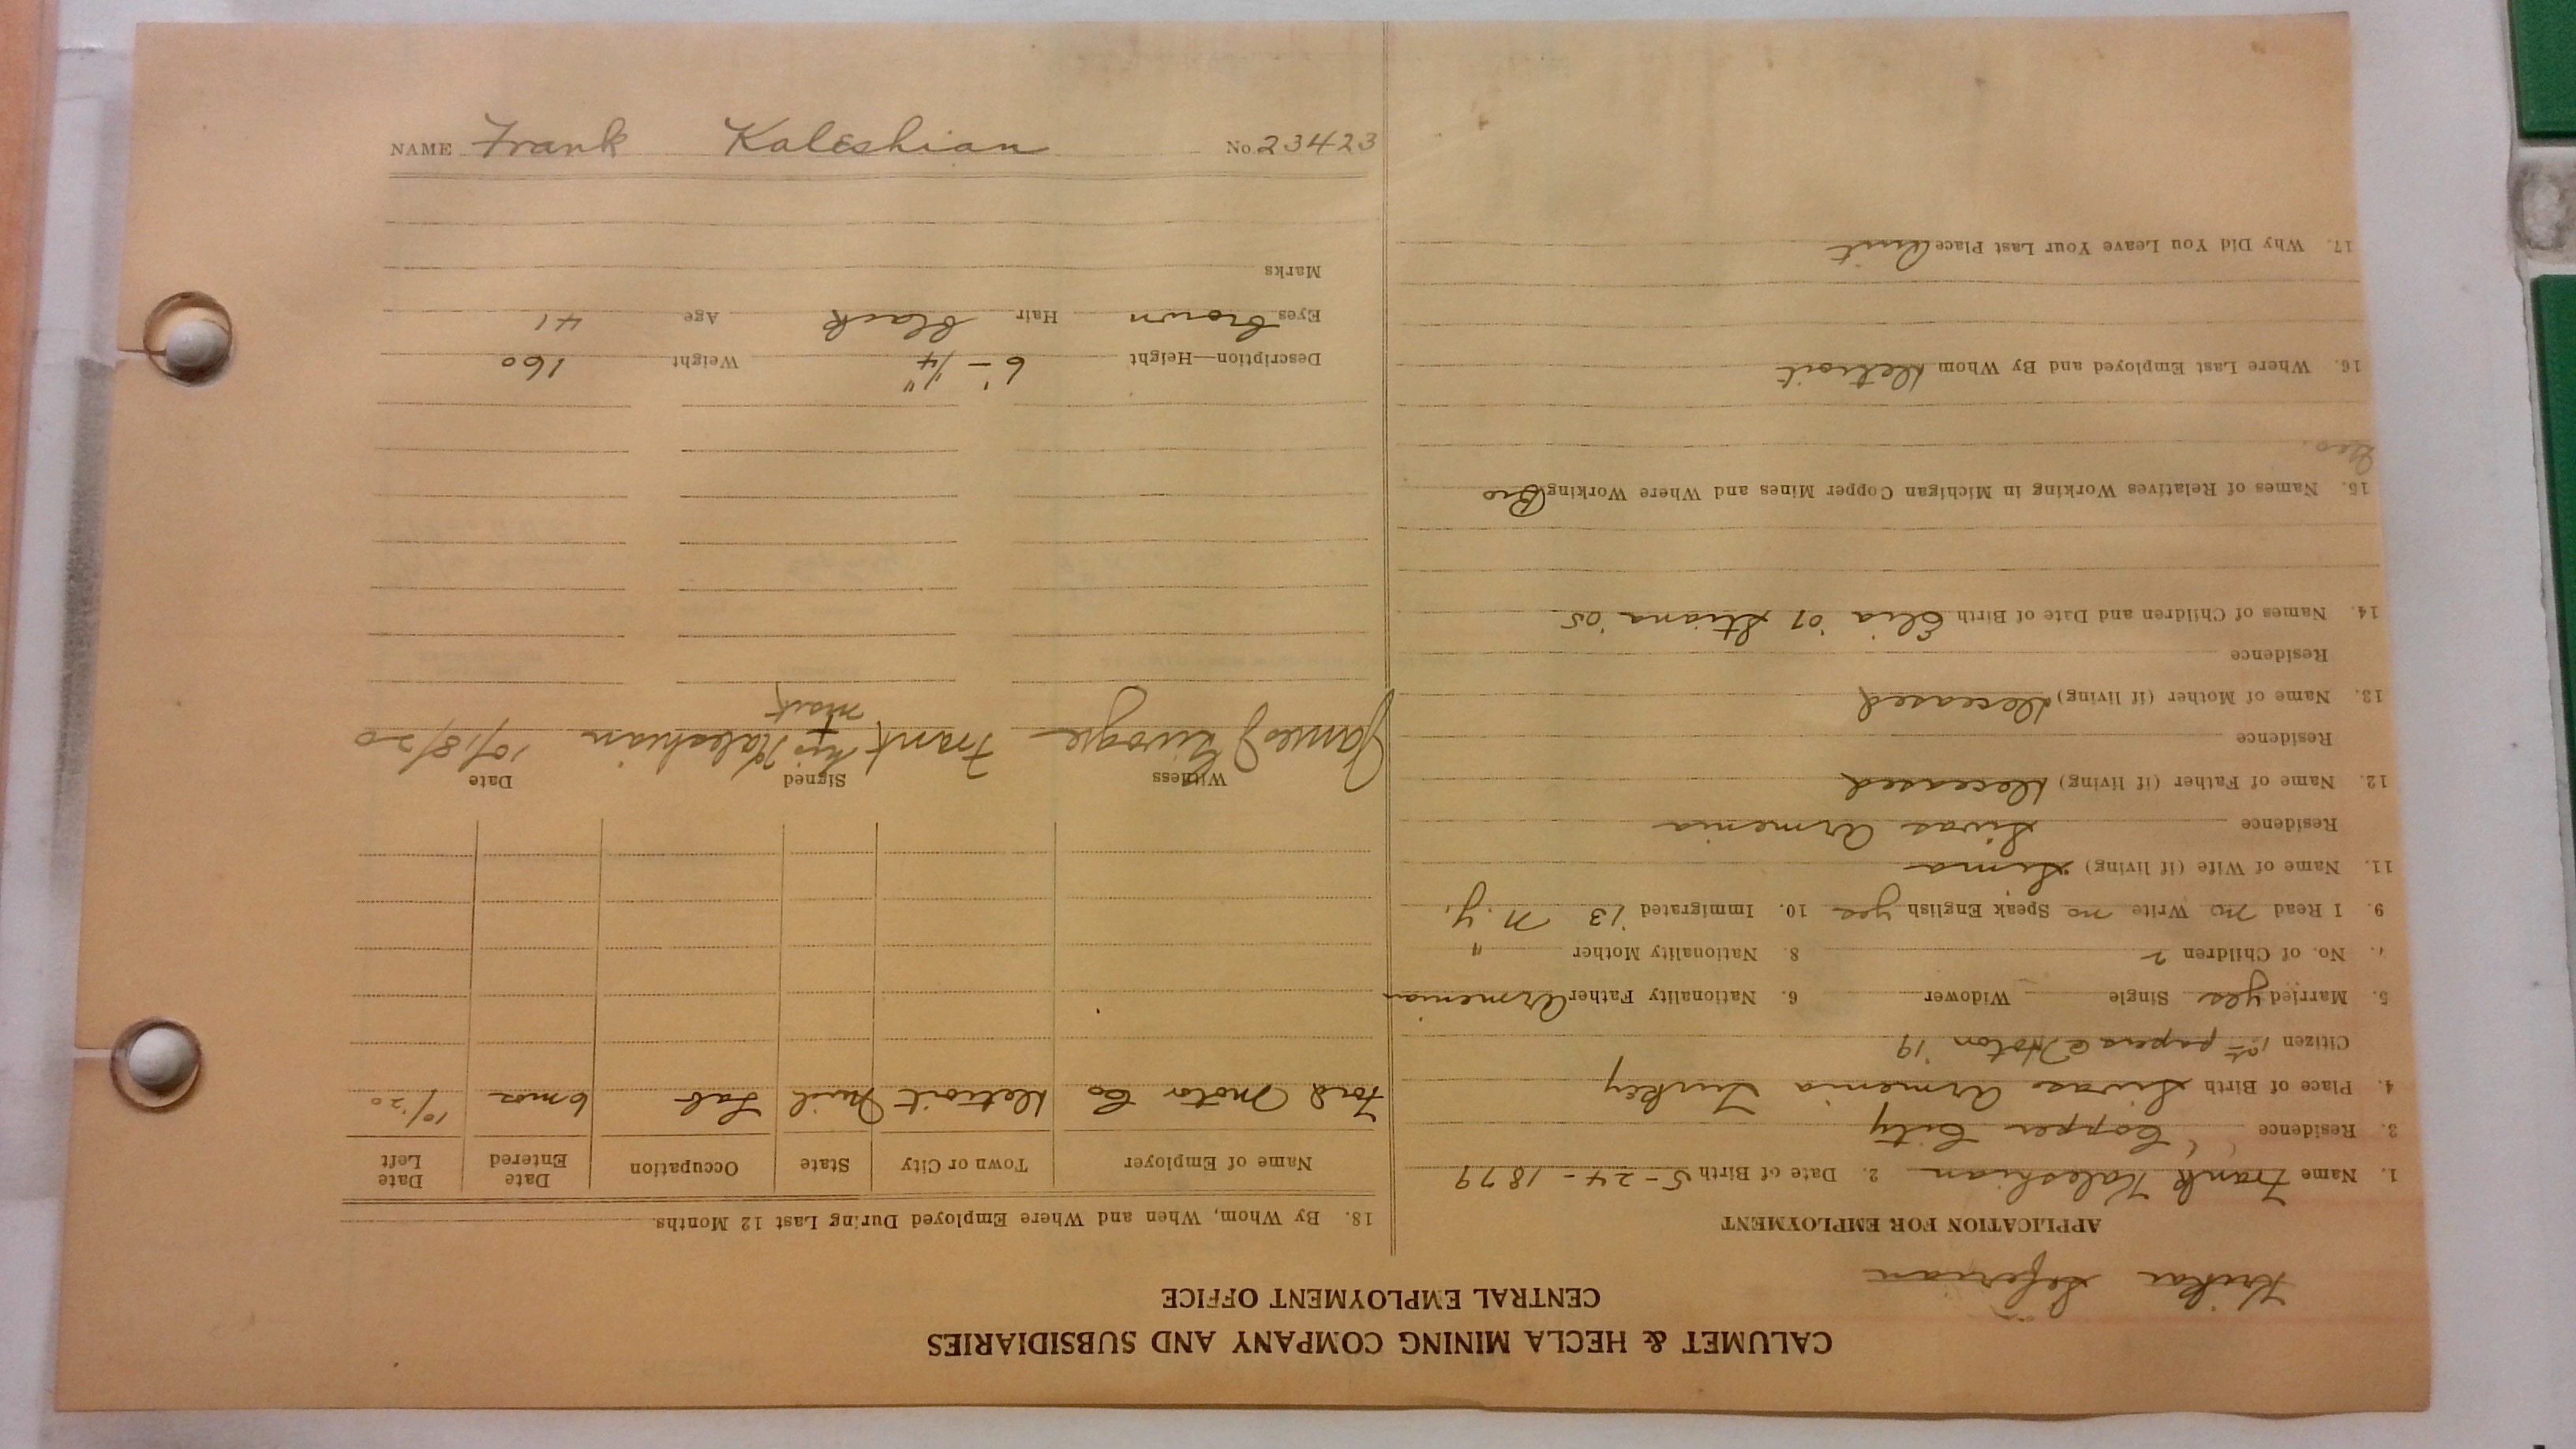 CALUMET & HECLA MINING COMPANY AND SUBSIDIARIES
CENTRAL EMPLOYMENT OFFICE
Krikar Seferian
APPLICATION FOR EMPLOYMENT
1. Name Frank Kaleshian 2. Date of Birth 5-24-1879
3. Residence Copper City
4. Place of Birth Sivas Armenia Turkey
Citizen 1st papers Hoton '19
5. Married yes Single Widower 6. Nationality Father Armenian
7. No. of Children 2 8. Nationality Mother "
9. I Read no Write no Speak English yes 10. Immigrated '13 N.Y.
11. Name of Wife (if living) Sima
Residence Sivas Armenia
12. Name of Father (if living) Deceased
Residence
13. Name of Mother (if living) Deceased
Residence
14. Names of Children and Date of Birth Elia '07 '05
15. Names of Relatives Working in Michigan Copper Mines and Where Working Bro
Geo.
16. Where Last Employed and By Whom Detroit
17. Why Did You Leave Your Last Place Quit
18. By Whom, When and Where Employed During Last 12 Months
Name of Employer Town or City State Occupation Date Entered Date Left
Ford Motor Co Detroit Mich Lab 6 mos 10/'20
Witness Signed Date
James J Frank his Kaleshian 10/18/20
+
mark
Description—Height 6'-1/4" Weight 160
Eyes brown Hair black Age 41
Marks
NAME Frank Kaleshian No. 23423